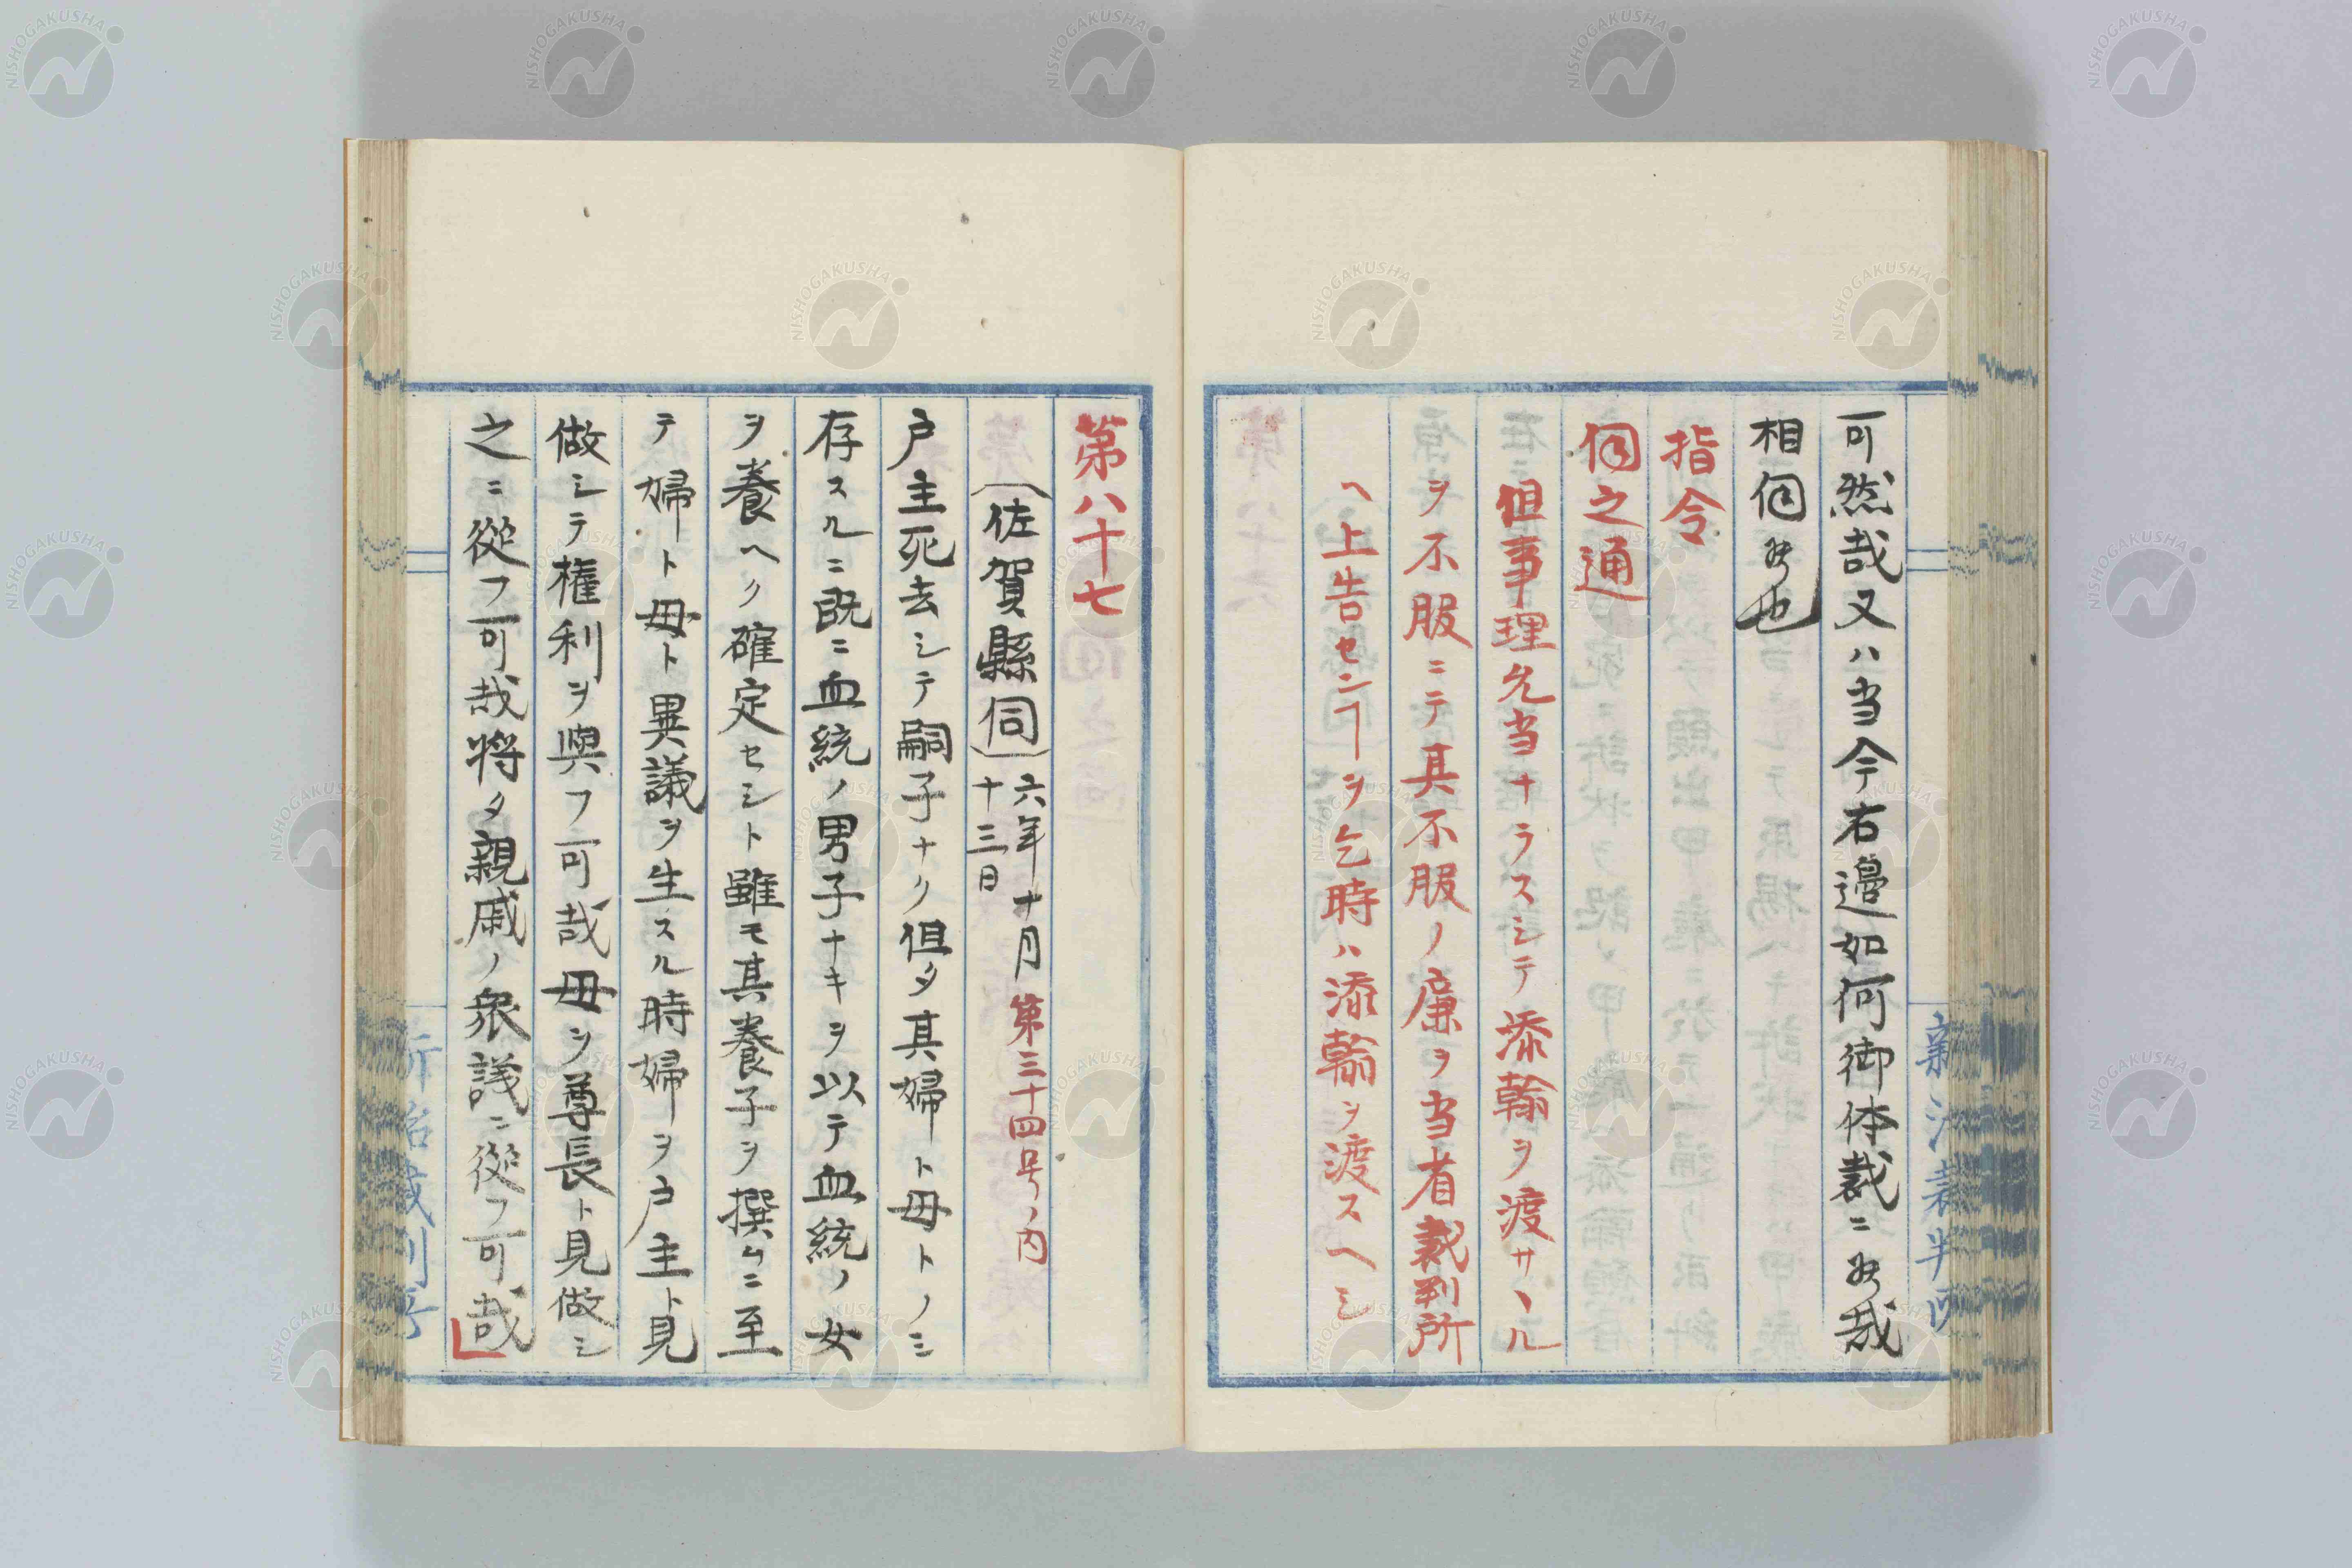 可然哉又ハ当今右邉如何御体裁ニ候哉
相伺候也
指令
伺之通
但事理允当ナラスシテ添翰ヲ渡サヽル
ヲ不服ニテ其不服ノ廉ヲ当省裁判所
ヘ上告センヿヲ乞時ハ添翰ヲ渡スヘシ
第八十七
(佐賀縣伺)六年十月十三日 第三十四号ノ内
戸主死去シテ嗣子ナク但タ其婦ト母トノミ
存スルニ既ニ血統ノ男子ナキヲ以テ血統ノ女
ヲ養ヘク確定セシト雖モ其養子ヲ撰ムニ至
テ婦ト母ト異議ヲ生スル時婦ヲ戸主ト見
做シテ権利ヲ與フ可哉母ヲ尊長ト見做シ
之ニ從フ可哉将タ親戚ノ衆議ニ從フ可哉
NISHOGAKUSHA